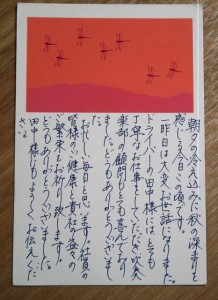 朝夕の冷え込みに秋の深まりを
感じる今日この頃です。
一昨日は大変お世話になりました。
ドライバーの田中様にはとても
丁寧なお仕事をしていただき吹奏
楽部の顧問もとても喜んでおり
ました。ありがとうございました。
お忙しい毎日と思いますが社員の
皆様のご健康と貴社の益々の
ご繁栄をお祈り致します。
どうもありがとうございました。
田中様にもよろしくお伝え下
さい